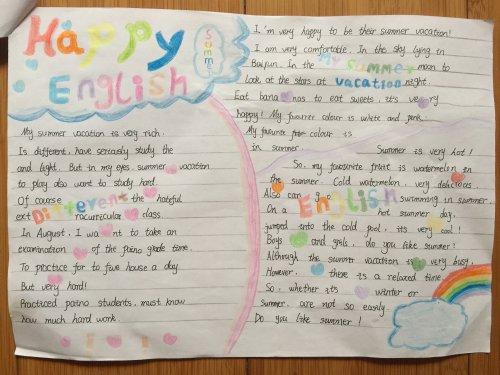 Happy
English
Summer
My summer vacation is very rich.
Is different. have seriously study the
and light. But in my eyes. summer vacation
to play also want to study hard.
Of course the hateful
Different
extracurricular class.
In August. I want to take an
examination of the paino grade time.
To practice for to five house a day.
But very hard!
Practiced paino students. must know
how much hard work.
I'm very happy to be their summer vacation!
I am very comfortable. In the sky lying in
In the moon to
My summer
Look at the stars at night
vacation
Eat bananas to eat sweets. it's very
happy! My favourer colour is white and pink.
My favourite colour is
in summer. Summer is very hot!
So. my favourite fruit is watermelon in
the summer. Cold watermelon. very delicious.
Also can go swimming in summer.
English
On a hot summer day.
jumped into the cold pool. its very cool!
Boys and girls. do you like summer?
Althrough the summer vacation is very busy.
However. there is a relaxed time.
So. whether its winter or
summer. are not so easily.
Do you like summer!